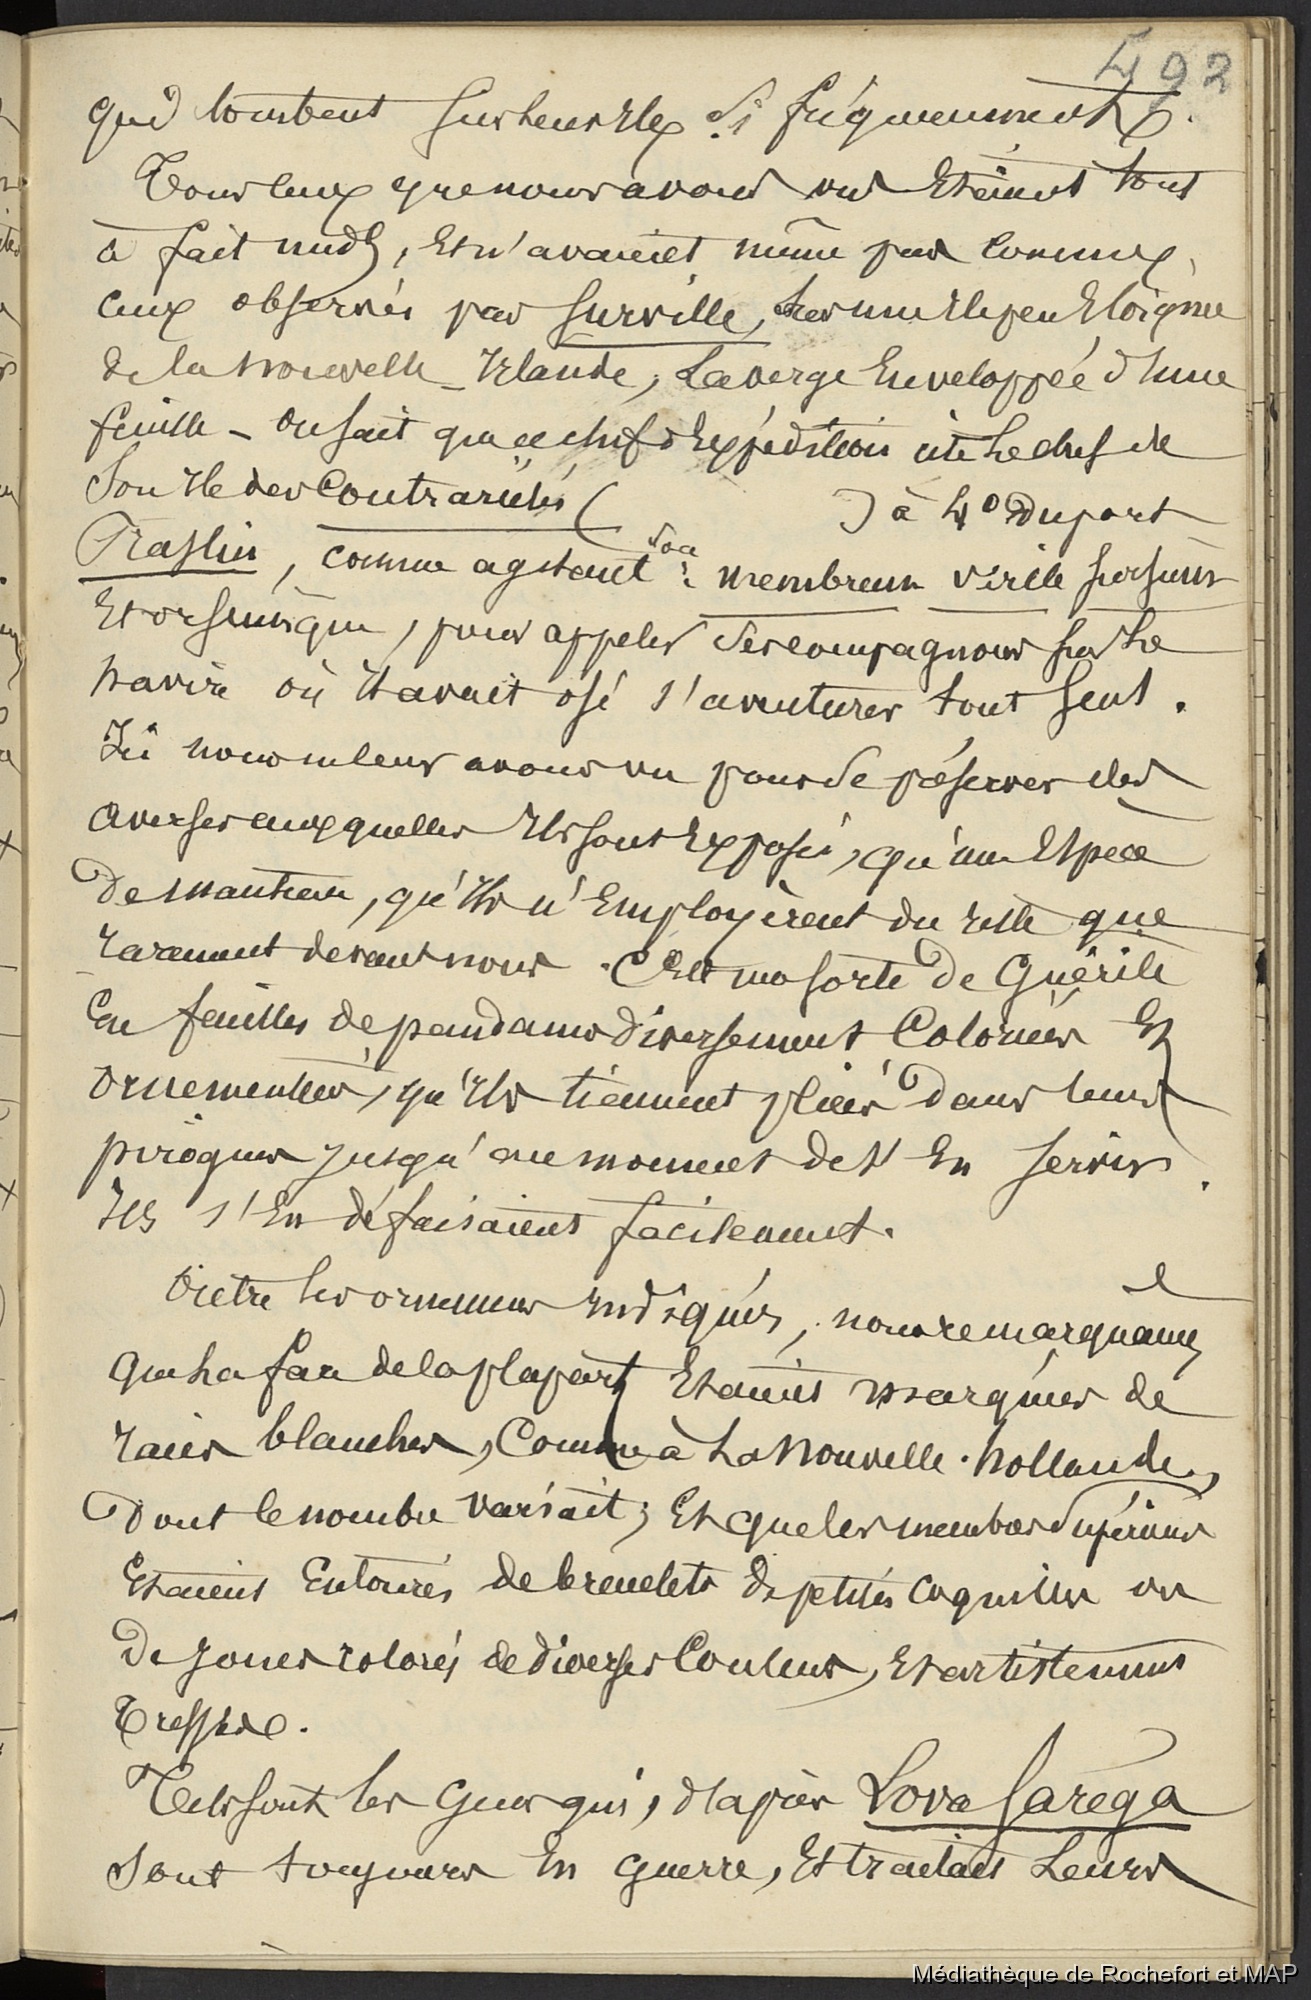 492
qui tombent sur leurs Iles si fréquemment.
Tous ceux que nous avons vus Etaient tous
à fait nuds, Et n'avaient même pas comme
ceux observés par Surville, sur une Ile peu Eloignée
de la Nouvelle-Irlande, La verge Enveloppée d'une
feuille - On sait que ce chef d'Expédition cite Le chef de
Son Ile des Contrariétés ( ) à 4° du port
Praslin, comme agitant son membrum virile sursum
Et orsumque, pour appeler Ses compagnons sur Le
Navire où Il avait osé s'aventurer tout seul.
Ici nous ne leur avons vu pour se préserver des
averses auxquelles Ils sont Exposés, qu'une Espèce
De manteau, qu'Ils n'Employèrent du reste que
rarement devant nous. C'est une sorte De Guérite
En feuilles de pandanus diversement Coloriées Et
ornementées, qu'Ils tiennent pliées Dans leurs
pirogues jusqu'au moment de s'En servir.
Ils s'En défaisaient facilement.
Outre les ornements Indiqués, nous remarquames
que La face de la plupart Etaient marquées de
raies blanches, Comme à La Nouvelle-hollande,
Dont le nombre variait; Et que les membres Supérieurs
Etaient Entourés de bracelets de petites coquilles ou
De joncs colorés de diverses Couleurs, Et artistement
Tressés.
Tels sont les Gens qui, d'après Lova Saréga
Sont toujours En guerre, Et traitent Leurs
Médiathèque de Rochefort et MAP